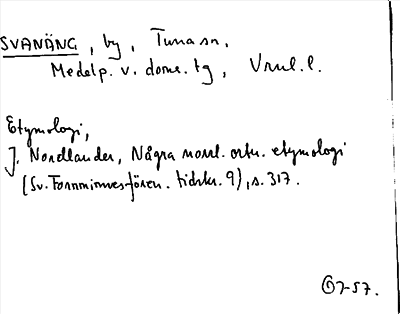 SVANÄNG, by, Tuna sn,
Medelp. v. doms. tg, Vnrl. l.
Etymologi,
J. Nordlander, Några norrl. ortn. etymologi
(Sv. Fornminnesfören. tidskr. 9), s. 317.
57.